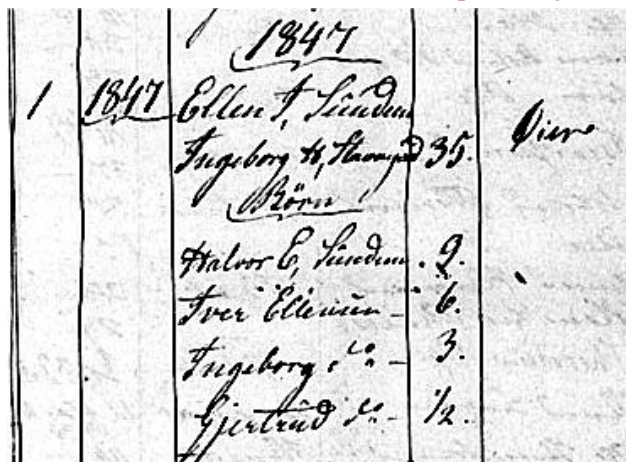 1847
1 1847 Ellen I, Sunden
Ingeborg H, 35.
Börn
Halvor E, Sunden. 9.
Iver Ellensen - 6.
Ingeborg do - 3.
Gjertrud do - 1/2.